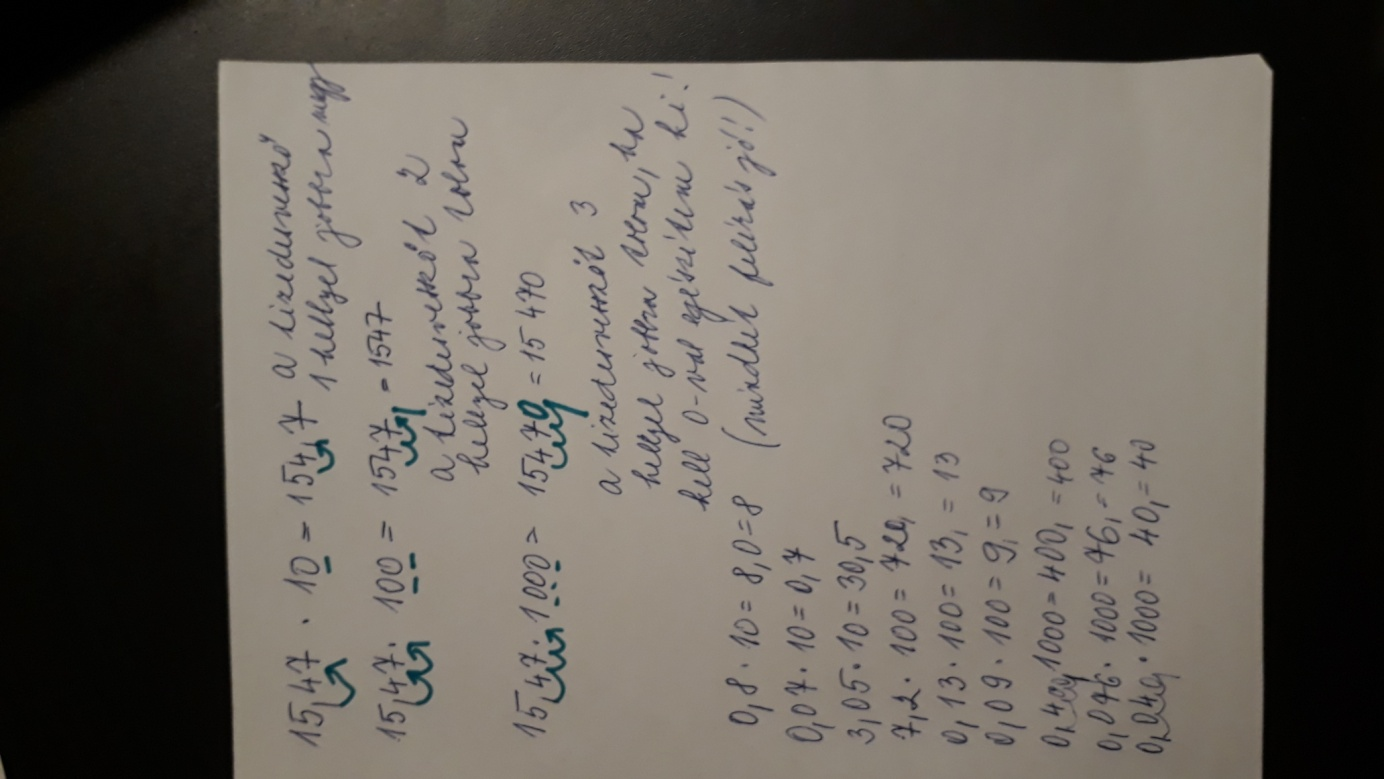 15,47 · 10 = 154,7 a tizedesvessző
1 hellyel jobbra megy
15,47 · 100 = 1547, = 1547
a tizedesvesszőt 2
hellyel jobbra tolom
15,47 · 1000 = 15470, = 15 470
a tizedesvesszőt 3
hellyel jobbra tolom, ha
kell 0-val egészítem ki!
0,8 · 10 = 8,0 = 8 (mindkét felírás jó!)
0,07 · 10 = 0,7
3,05 · 10 = 30,5
7,2 · 100 = 720, = 720
0,13 · 100 = 13, = 13
0,09 · 100 = 9, = 9
0,400 · 1000 = 400, = 400
0,076 · 1000 = 76, = 76
0,040 · 1000 = 40, = 40